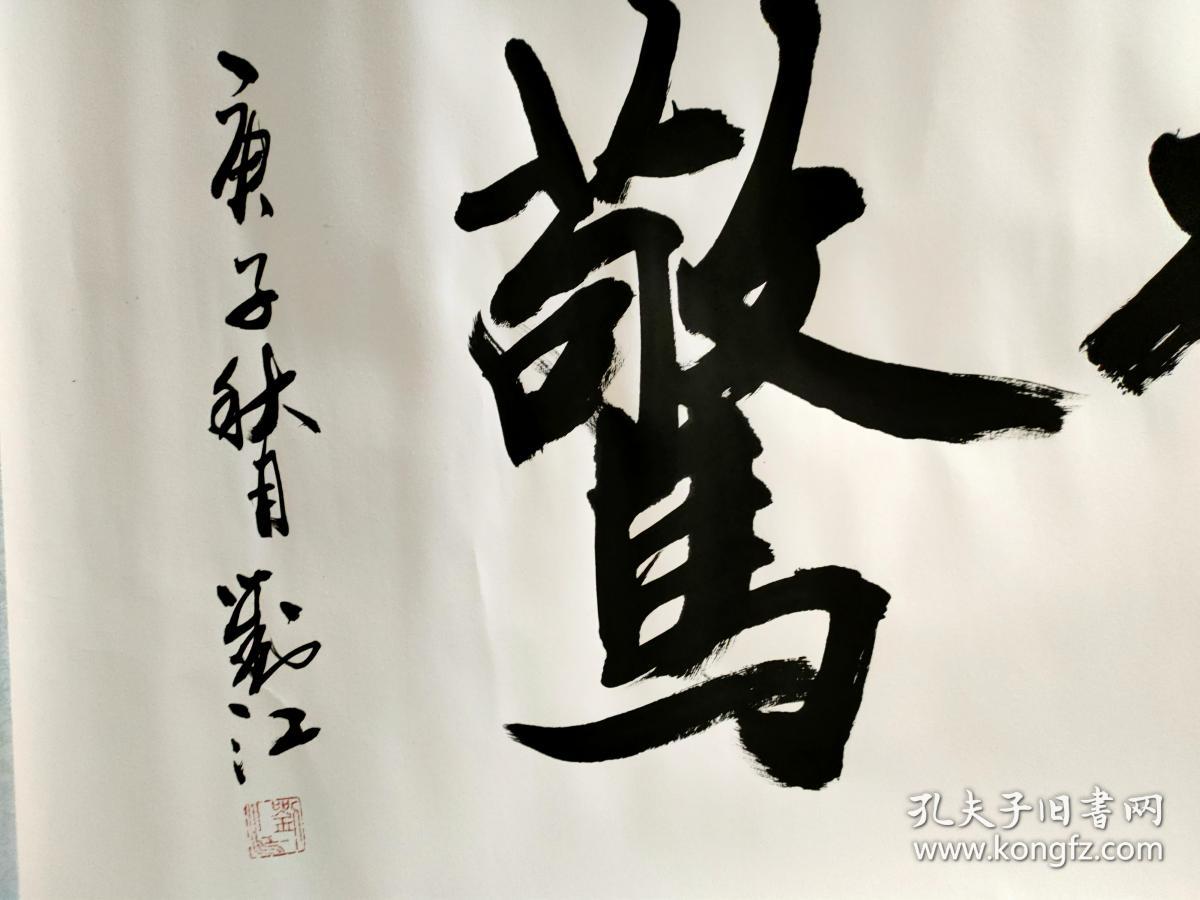 驚
庚子秋月 劉江
孔夫子旧書网
www.kongfz.com